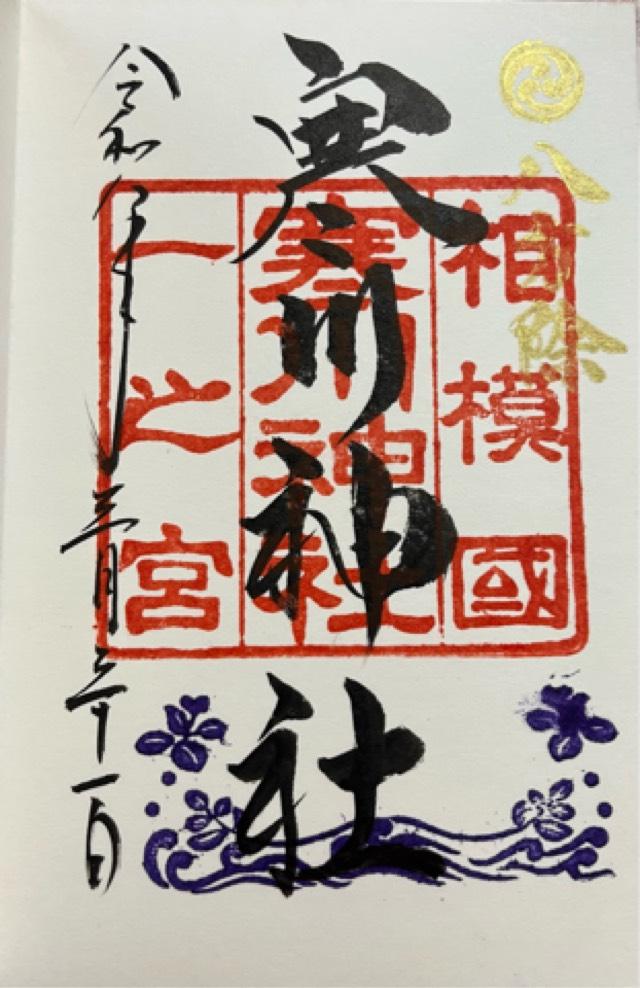 八方除
寒川神社
相模國
寒川神社
一之宮
令和
年三月三十一日